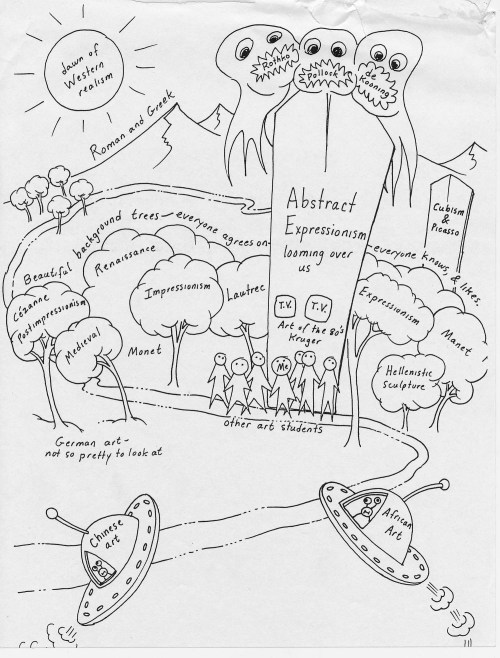 dawn of
Western
realism
Rothko
Pollock
de
Kooning
Roman and Greek
Cubism
&
Picasso
Abstract
Expressionism
looming over
us
Beautiful background trees—everyone agrees on—
—everyone knows, & likes.
Renaissance
Cézanne
Postimpressionism
Impressionism
Lautrec
Expressionism
Medieval
Monet
T.V.
T.V.
Art of the 80's
Kruger
Manet
Hellenistic
sculpture
Me
other art students
German art-
not so pretty to look at
Chinese
art
African
Art